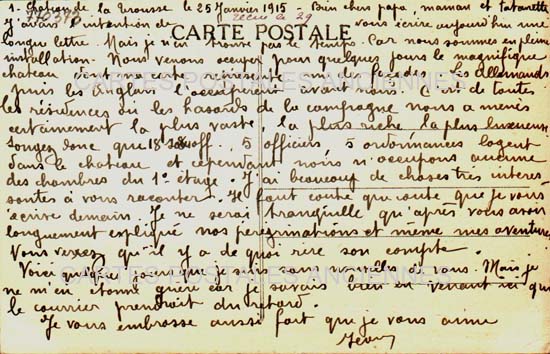 de la Trousse le 25 Janvier 1915 - Bien chers papa, maman et
J'avais l'intention de vous écrire aujourd'hui une
CARTE POSTALE
longue lettre. Mais je n'en trouve pas le temps. Car nous sommes en pleine
installation. Nous venons occuper pour quelques jours le magnifique
chateau dont ma carte reproduit une façade. Les Allemands
puis les anglais l'occupèrent avant nous. C'est de toutes
CARTES POSTALES ANCIENNES
les résidences où les hasards de la campagne nous a menés
certainement la plus vaste, la plus riche, la plus luxueuse
Songez donc que 18 5 officiers, 5 ordonnances logent
dans le chateau et cependant nous n'occupons aucune
des chambres du 1e étage. J'ai beaucoup de choses très interes-
santes à vous raconter. Il faut coute que coute que je vous
écrive demain. Je ne serai tranquille qu'après vous avoir
longuement expliqué nos peregrinations et même mes aventures
Vous verrez qu'il y a de quoi rire son compte.
Voici quelques jours que je suis sans nouvelles de vous. Mais je
CARTES POSTALES ANCIENNES
ne m'en étonne guère car je savais bien en venant ici que
le courrier prendroit du retard.
Je vous embrasse aussi fort que je vous aime